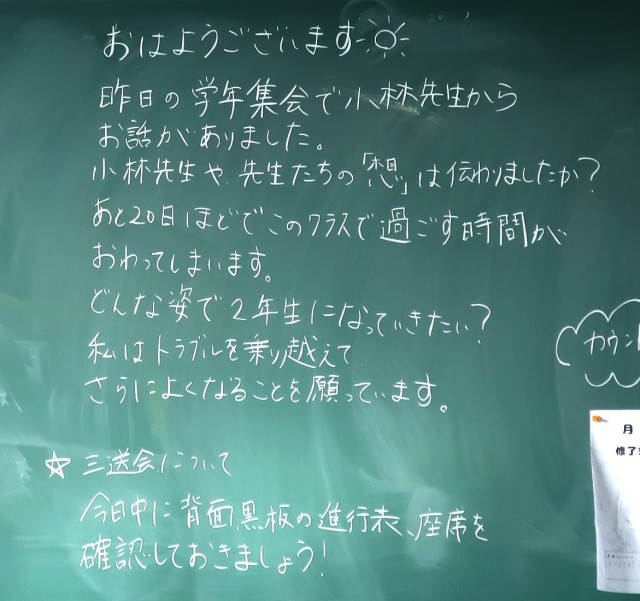 おはようございます
昨日の学年集会で小林先生から
お話がありました。
小林先生や先生たちの「想」は伝わりましたか?
あと20日ほどでこのクラスで過ごす時間が
おわってしまいます。
どんな姿で2年生になっていきたい?
私はトラブルを乗り越えて
さらによくなることを願っています。
☆三送会について
今日中に背面黒板の進行表、座席を
確認しておきましょう!
カウント
月
修了